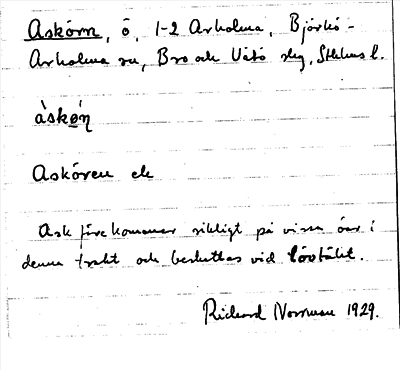 Askörn, ö, 1-2 Arholma, Björkö-
Arholma sn, Bro och Vätö slg, Sthlms l.
àskø̀ṇ
Askören ek
Ask förekommer rikligt på vissa öar i
denna trakt och beskattas vid lövtäkt.
Rickard Norrman 1929.